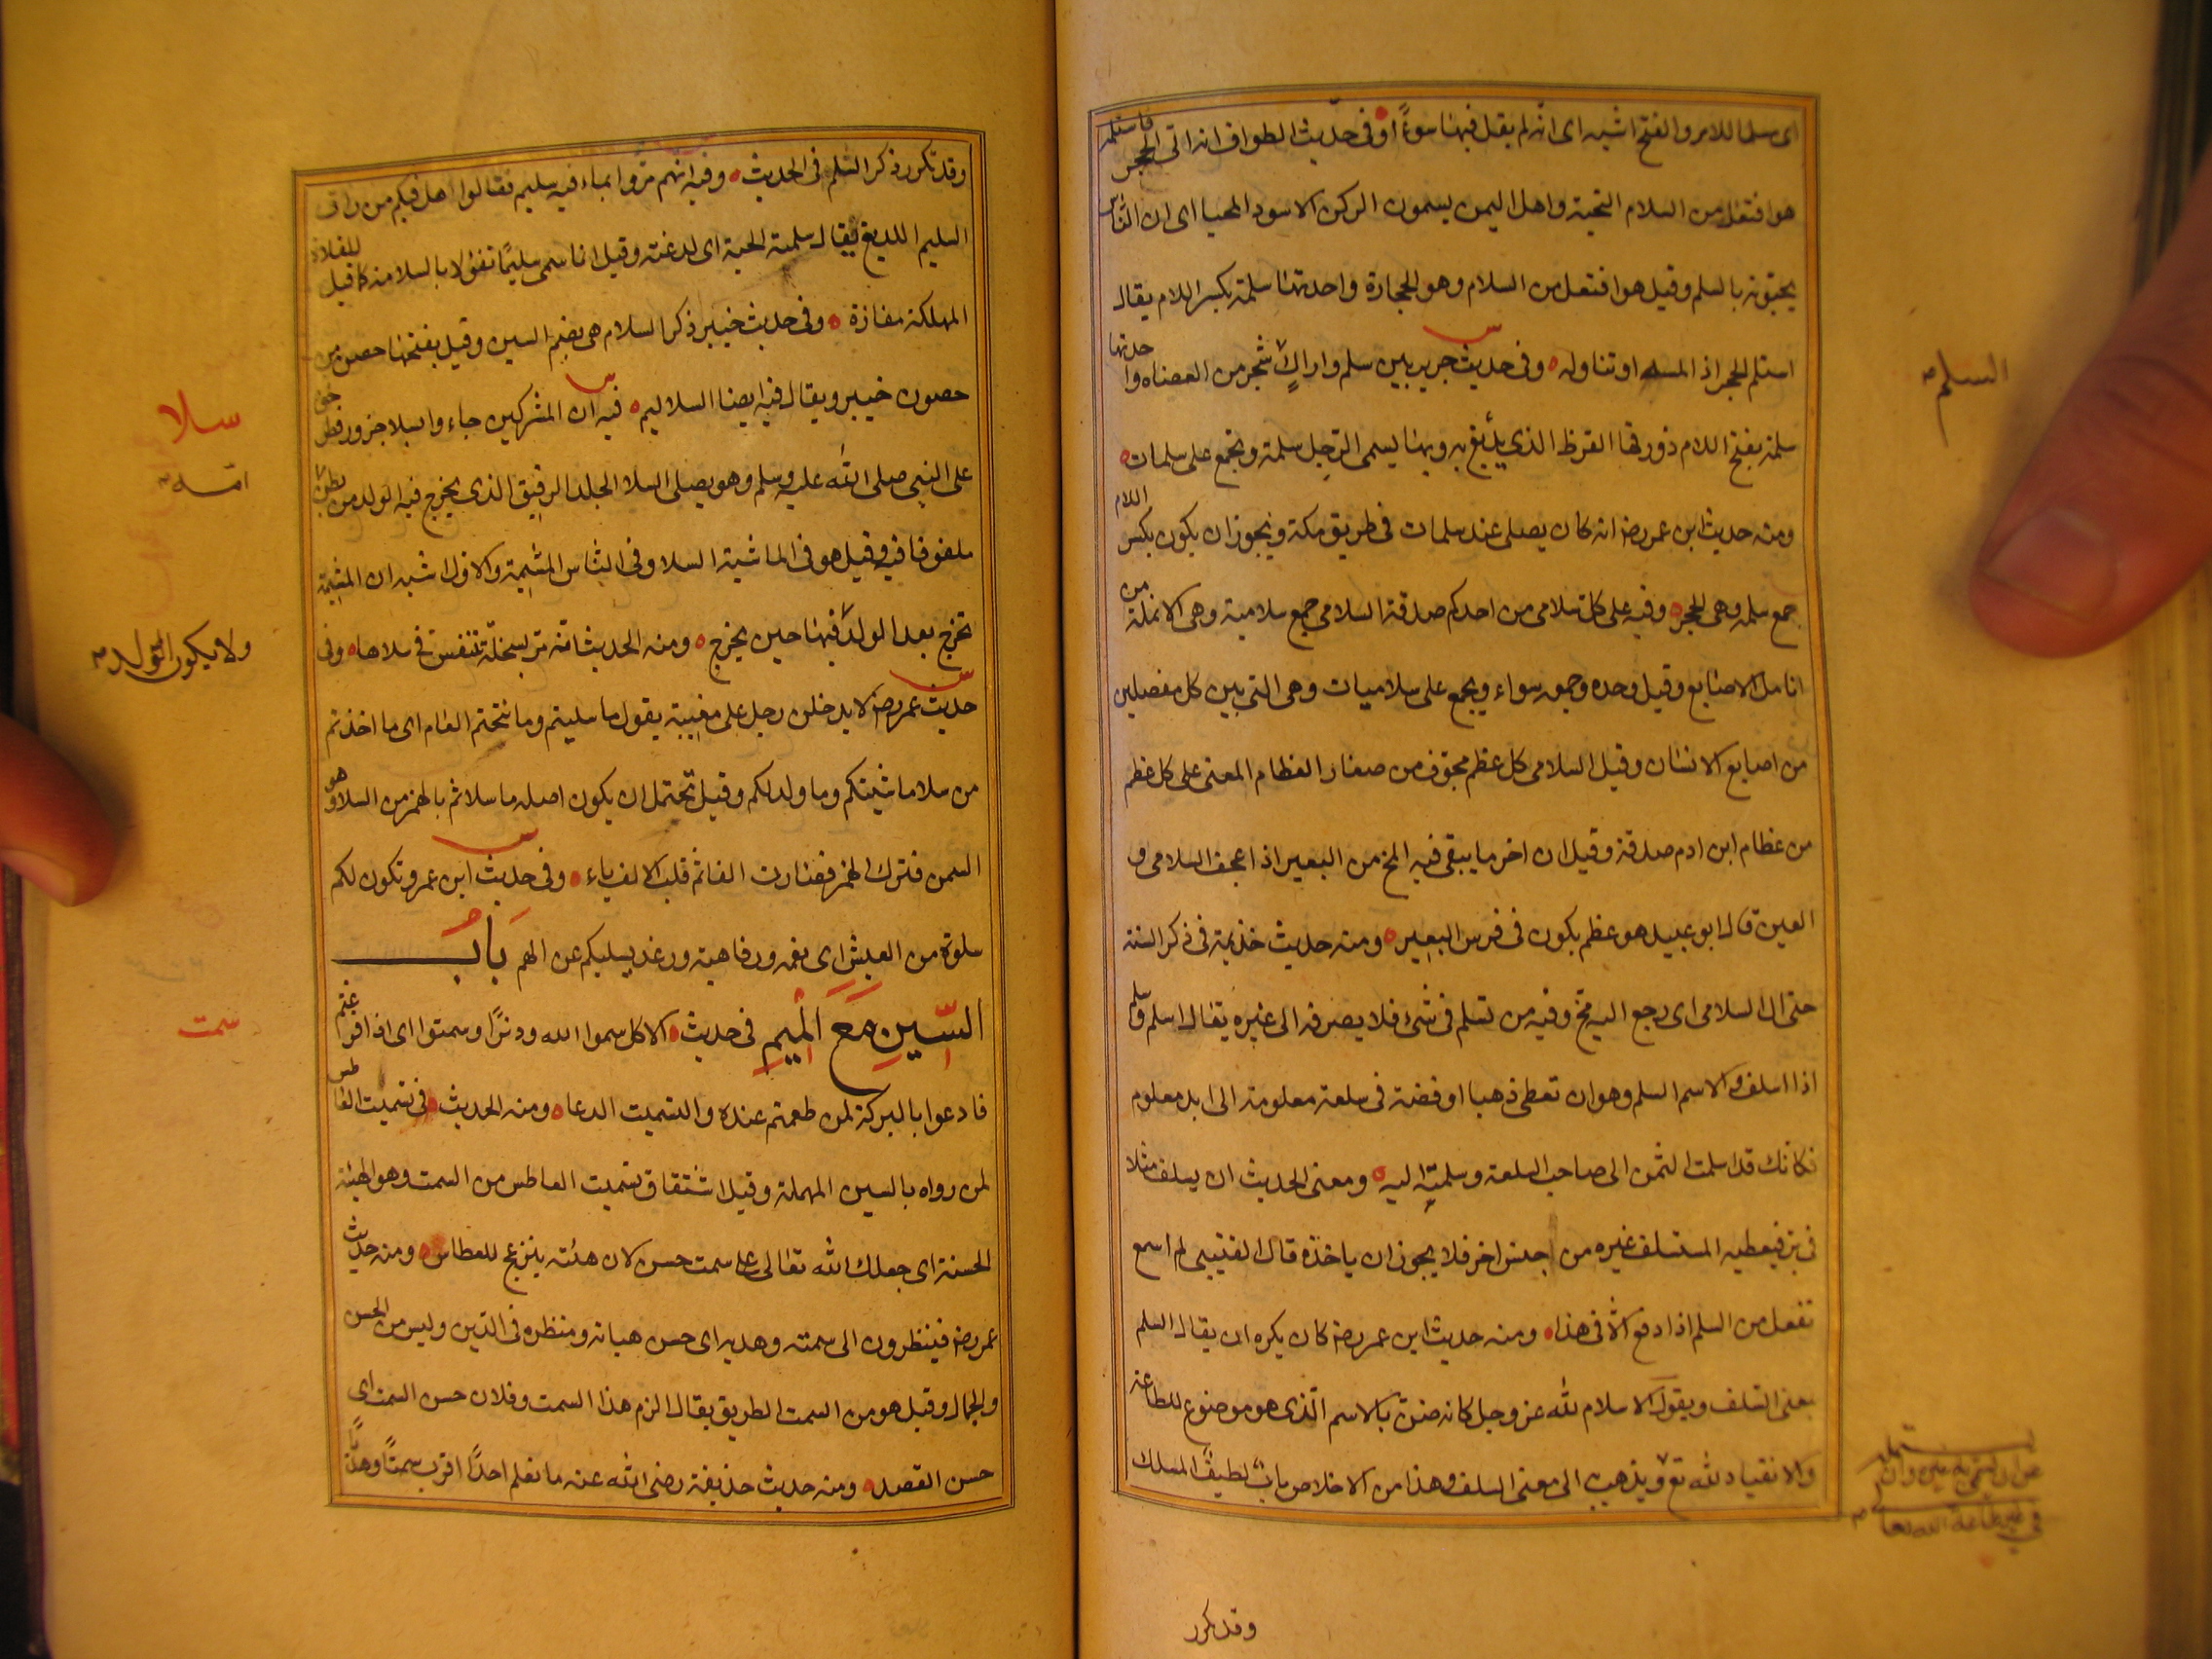 اى سلما للامر والفتح اشبه اى انه لم يقبل فيهنا سوءًا وفى حديث الطواف انه اتى الحجر فاستلمه
هو افتعل من السلام التحية واهل اليمن يسمون الركن الاسود المحيا اى ان الناس
يحيونه بالسلم وقيل هو افتعل من السلام وهو الحجارة واحدتها سلمة بكسر اللام يقال
استلم الحجر اذا لمسه او تناوله وفى حديث جرير بين سلم واراكٍ شجر من العضاه واحدتها
سلمة بفتح اللام ذورقها القرظ الذى يدبغ به وبها يسمى الرجل سلمة وتجمع على سلمات
ومنه حديث ابن عمر رضه انه كان يصلى عند سلمات فى طريق مكة ويجوز ان يكون بكسر اللام
جمع سلمه وهى الحجر وفيه على كل سلامى من احدكم صدقة السلامى جمع سلامية وهى الانملة من
انامل الاصابع وقيل وحده وجمعه سواء ويجمع على سلاميات وهى التى بين كل مفصلين
من اصابع الانسان وقيل السلامى كل عظم مجوف من صغار العظام المعنى على كل عظم
من عظام ابن ادم صدقة وقيل ان اخر ما يبقى فيه المخ من البعير اذا عجف السلامى و
العين قال ابو عبيد هو عظم يكون فى فرس البعير ومنه حديث خذيمة فى ذكر السنة
حتى ال السلامى اى رجع اليه مخ وفيه من تسلم فى شئ فلا يصرفه الى غيره يقال اسلم وسلم
اذا اسلف والاسم السلم وهو ان تعطى ذهبا او فضة فى سلعة معلومة الى ابد معلوم
فكانك قد اسلمت الثمن الى صاحب السلعة وسلمته اليه ومعنى الحديث ان يسلف مثلا
فى بر فيعطيه المستسلف غيره من جنس اخر فلا يجوز ان ياخذه قال القتيبى لم اسمع
تفعل من السلم اذا دفع الا فى هذا ومنه حديث ابن عمر رضه كان يكره ان يقال السلم
بمعنى السلف ويقول الاسلام لله عز وجل كانه ضن بالاسم الذى هو موضوع للطاعة
والانقياد لله تع ويذهب الى معنى السلف وهذا من الاخلاص باب لطيف المسلك
السلم
فى غير طاعة الله تعا
وقد تكرر
وقد تكرر ذكر السلم فى الحديث وفيه انهم مروا بماء فيه سليم فقالوا هل فيكم من راق
السليم اللديغ يقال سلمته الحية اى لدغته وقيل انما سمى سليمًا تفؤلا بالسلامة كما قيل للفلاة
المهلكة مفازة وفى حديث خيبر ذكر السلام هى بضم السين وقيل بفتحها حصن من
حصون خيبر ويقال فيه ايضا السلاليم فيه ان المشركين جاءوا بسلا جزور فطرحوه
على النبى صلى الله عليه وسلم وهو يصلى السلا الجلد الرقيق الذى يخرج فيه الولد من بطن
ملفوفا فيه وقيل هو فى الماشية السلا وفى الناس المشيمة والاول اشبه ان المشيمة
تخرج بعد الولد فيها حين يخرج ومنه الحديث انه مر بسخلة تتنفس فى سلاها وفى
حديث عمر رضه لا يدخلن رجل على مغيبة يقول ما سليتم وما نتجتم العام اى ما اخذتم
من سلا ماشيتكم وما ولد لكم وقيل تحتمل ان يكون اصله ما سلاتم بالهمز من السلا وهو
السمن فترك الهمز فصارت الفا ثم قلب الالف ياء وفى حديث ابن عمر وتكون لكم
سلوة من العيش اى نعمه ورفاهية ورغد يسليكم عن الهم بابـ
السين مع الميم فى حديث الاكل سموا الله ودنوا وسمتوا اى اذا فرغتم
فادعوا بالبركة لمن طعمتم عنده والتسميت الدعا ومنه الحديث فى تسميت العاطس
لمن رواه بالسين المهملة وقيل اشتقاق تسميت العاطس من السمت وهو الهيئة
الحسنة اى جعلك الله تعالى على سمت حسن لان هيئته ينزعج للعطاس ومنه حديث
عمر رضه فينظرون الى سمته وهديه اى حسن هياته ومنظره فى الدين وليس من الحسن
والجمال وقيل هو من السمت الطريق يقال الزم هذا السمت وفلان حسن السمت اى
حسن القصد ومنه حديث حذيفة رضى الله عنه ما نعلم احدًا اقرب سمتًا وهديًا
سلا
امته
ولا يكون الولد
سمت